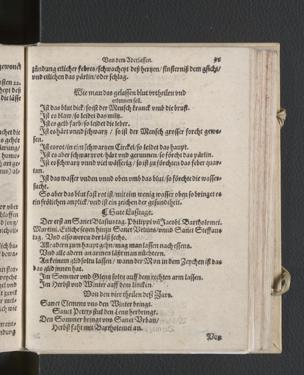 Von dem Aderlassen.
zündung etlicher febres / schwacheyt deß hertzen / finsterniß dem gsicht /
vnd etlichen das pärlin / oder schlag.
Wie man das gelassen blut vrtheilen vnd
erkennen soll.
Ist das blut dick / so ist der Mensch kranck vnd die brust.
Ist es blaw / so leidet das miltz.
Ist es gelb farb / so leidet die leber.
Ist es härt vnd schwartz / so ist der Mensch grosser forcht gewe-
sen.
Ist es rot / in ein schwartzen Circkel / so leidet das haupt.
Ist es aber schwartz rot hart vnd gerunnen / so förcht das pärlin.
Ist es schwartz vnd wässerig / so ist zu förchten das feber quar-
tan.
Ist das wasser vnden vnnd oben vmb das blut / so förchte die wasser-
sucht.
So aber das blut fast rot ist / mit ein wenig wasser oben / so bringet es
ein frölichen ampelick / vnd ist ein zeichen der gesundtheit.
Gute Laßtage.
Der erst an Sanct Blasius tag. Philippi vñ Jacobi. Bartholomei.
Martini. Etliche setzen hinzu Sanct Veltins / vnnd Sanct Steffans
tag. Vnd also wer en der läß sechs.
Alle adern zum haupt gehn / mag man lassen nach essens.
Vnd alle adern an armen läßt man nüchtern.
An keinem glid soltu lassen / wann der Mon in dem Zeychen ist das
das glid innen hat.
Im Sommer vnd Glentz solte auff dem rechten arm lassen.
Im Herbst vnd Winter auff dem lincken.
Von den vier theilen deß Jars.
Sanct Clemens vns den Winter bringt.
Sanct Petters stul den Lentz herbringt.
Den Sommer bringt vns Sanct Vrban /
Herbst faht mit Bartholomei an.